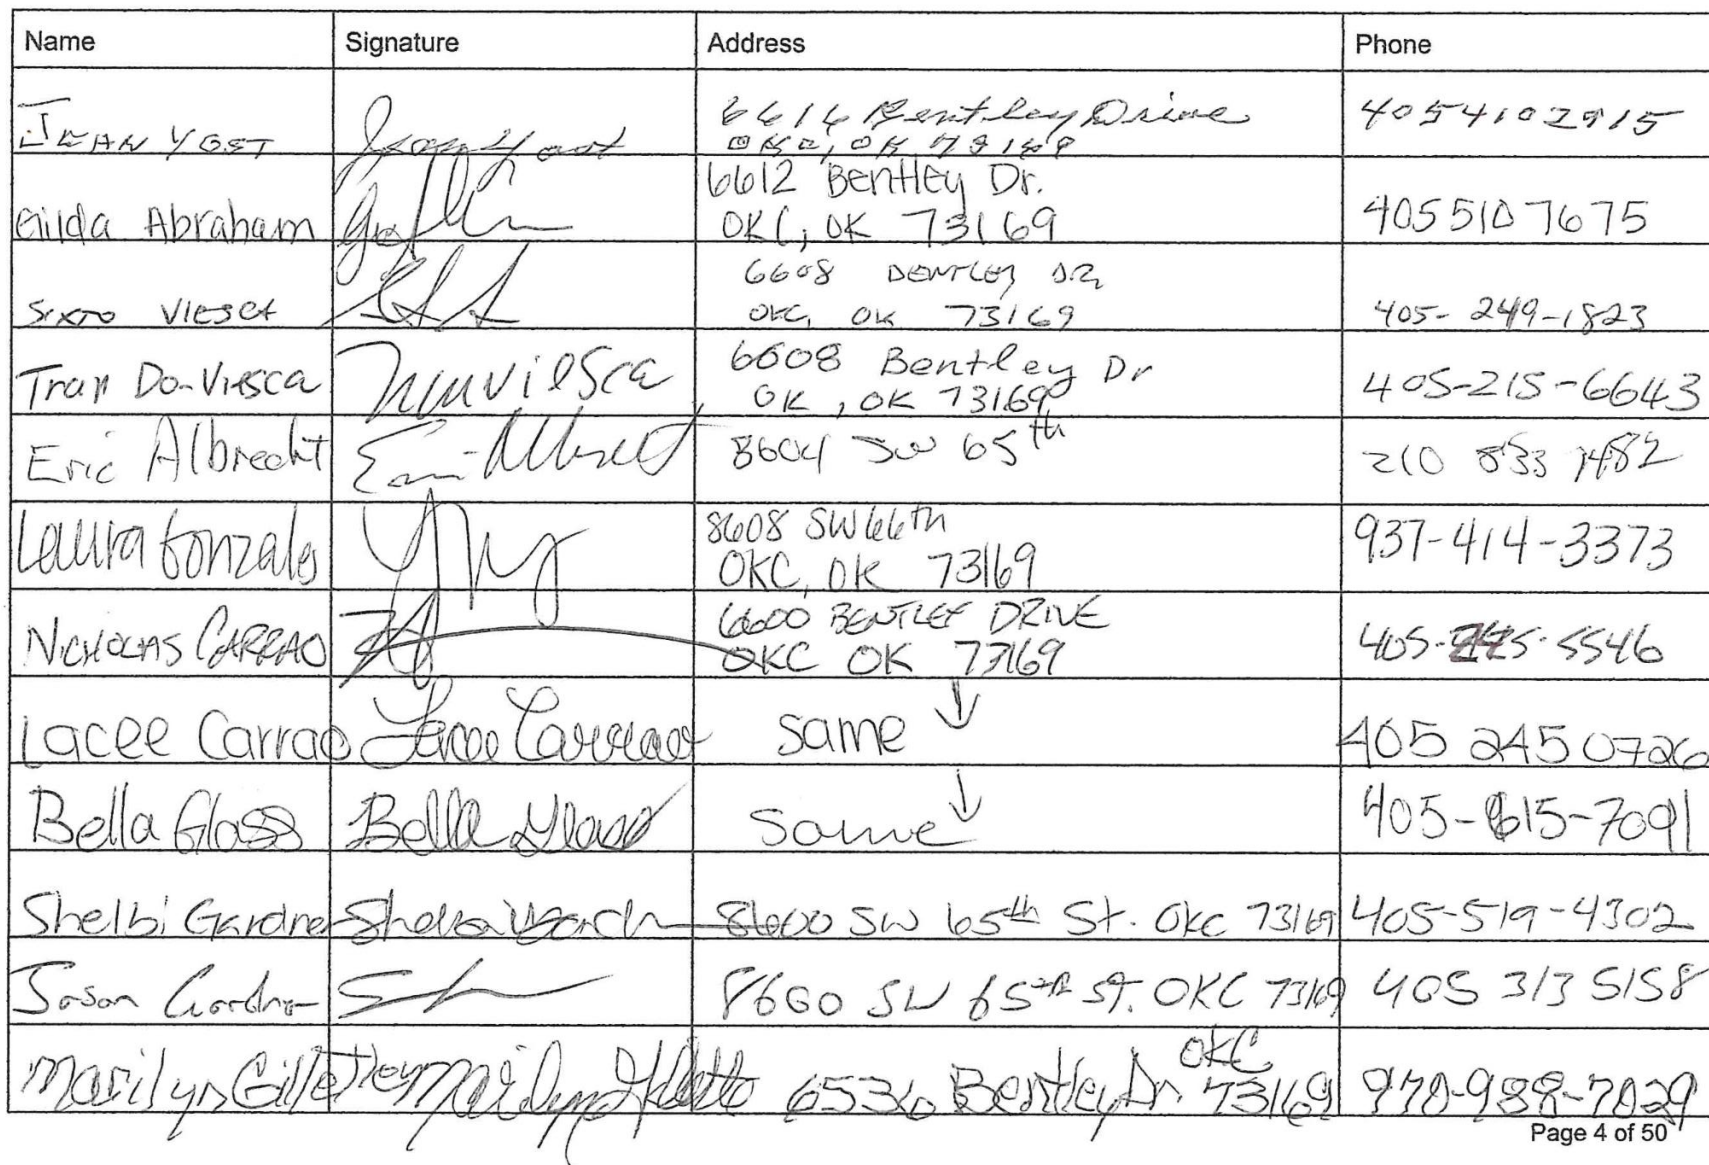 Name Signature Address Phone
JEAN YOST Jean Yost 6616 Bentley Drive 4054102915
OKC, OK 73169
Gilda Abraham 6612 Bentley Dr. 4055107675
OKC, OK 73169
SIXTO VIESCA 6608 BENTLEY DR, 405-249-1823
OKC, OK 73169
Tran Do-Viesca Tranviesca 6608 Bentley Dr 405-215-6643
OK, OK 73169
Eric Albrecht Eric Albrecht 8604 SW 65th 210 833 1482
Laura Gonzales 8608 SW 66th 937-414-3373
OKC, OK 73169
NICHOLAS CARRAO 6600 BENTLEY DRIVE 405- 5546
OKC OK 73169
Lacee Carrao Lacee Carrao same ↓ 405 245 0726
Bella Glass Bella Glass Same ↓ 405-615-7091
Shelbi Gardner Shelbi Gardner 8600 SW 65th St. OKC 73169 405-519-4302
Jason Gardner 8600 SW 65th ST. OKC 73169 405 313 5158
Marilyn Gillette Marilyn Gillette 6536 Bentley Dr OKC 73169 970-988-7029
Page 4 of 50